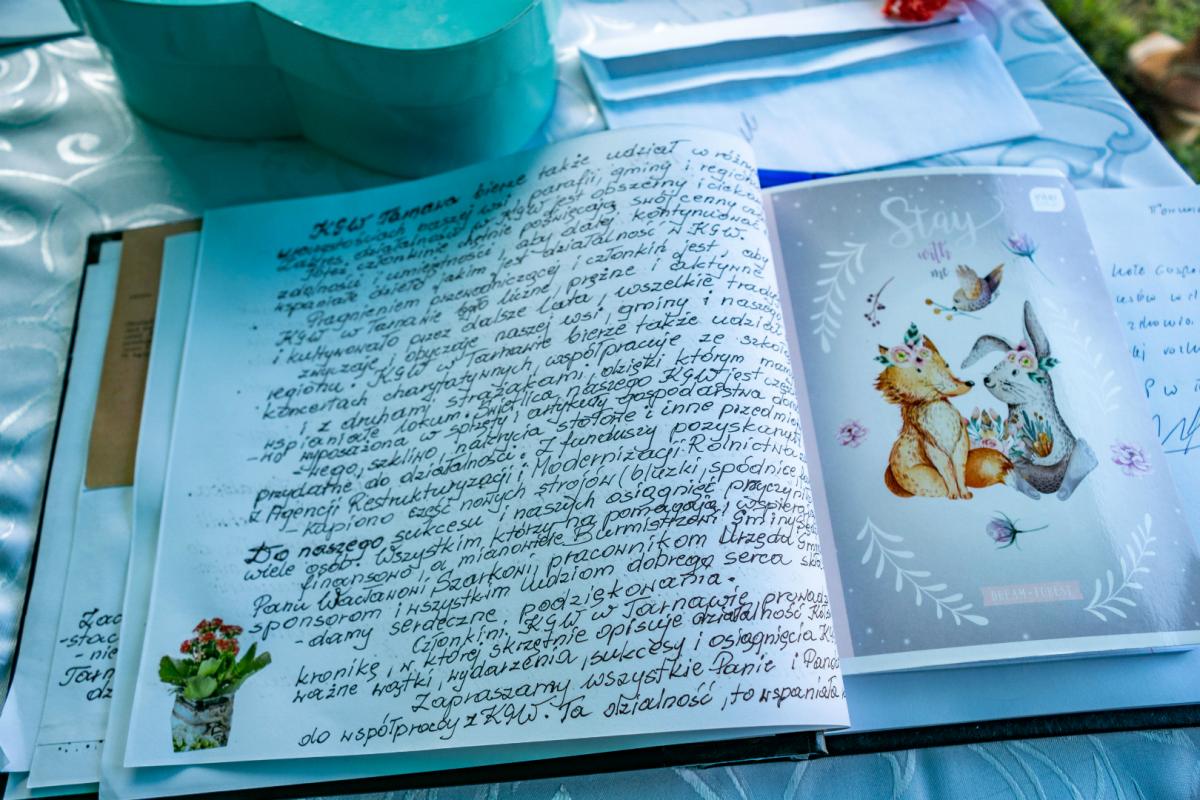 KGW Tarnawa bierze także udział w różny
uroczystościach naszej wsi, parafii, gminy i regio
zakres działalności w KGW jest obszerny i cieka
członkinie chętnie poświęcają swój cenny
zdolności i umiejętności, aby dalej kontynuować
wspaniałe dzieło jakim jest działalność w KGW.
Pragnieniem przewodniczącej i członkiń jest, aby
KGW w Tarnawie było liczne, prężne i aktywne
i kultywowało przez dalsze lata, wszelkie tradyc
zwyczaje i obyczaje naszej wsi, gminy i naszego
regionu. KGW w Tarnawie bierze także udział
koncertach charytatywnych, współpracuje ze szkołą
i z druhami strażakami, dzięki którym mam
wspaniałe lokum. Świetlica naszego KGW jest częś
wo wyposażona w sprzęty i artykuły gospodarstwa dom
wego, szkliwo, nakrycia stołowe i inne przedmio
przydatne do działalności. Z funduszy pozyskanych
z Agencji Restrukturyzacji i Modernizacji Rolnictwa z
kupiono część nowych strojów (bluzki, spódnice,
Do naszego sukcesu i naszych osiągnięć przyczyni
wiele osób. Wszystkim którzy na pomagają, wspiera
finansowo a mianowicie Burmistrzowi Gminy
Panu Wacławowi Szarkowi, pracownikom Urzędu Gm
sponsorom i wszystkim ludziom dobrego serca skł
damy serdeczne podziękowania.
Członkinie KGW w Tarnawie prowadz
kronikę, w której skrzętnie opisuje działalność
ważne wątki, wydarzenia, sukcesy i osiągnięcia KG
Zapraszamy wszystkie Panie i Panó
do współpracy z KGW. Ta działalność, to wspaniała
Zac
-stac
-nie
Tarn
dz
Stay
with
me
DREAM FOREST